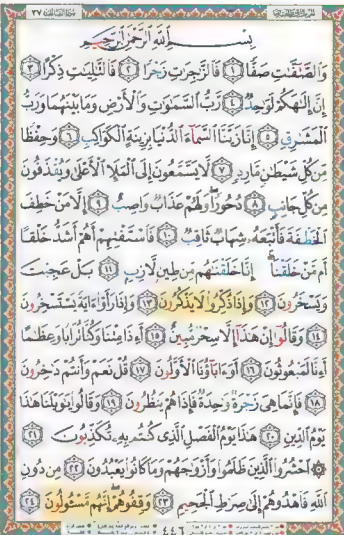 سورة الصافات ٣٧
بِسْمِ اللَّهِ الرَّحْمَٰنِ الرَّحِيمِ
وَالصَّٰٓفَّٰتِ صَفًّا ١ فَالزَّٰجِرَٰتِ زَجْرًا ٢ فَالتَّٰلِيَٰتِ ذِكْرًا ٣
إِنَّ إِلَٰهَكُمْ لَوَٰحِدٌ ٤ رَّبُّ السَّمَٰوَٰتِ وَالْأَرْضِ وَمَا بَيْنَهُمَا وَرَبُّ
الْمَشَٰرِقِ ٥ إِنَّا زَيَّنَّا السَّمَآءَ الدُّنْيَا بِزِينَةٍ الْكَوَاكِبِ ٦ وَحِفْظًا
مِّن كُلِّ شَيْطَٰنٍ مَّارِدٍ ٧ لَّا يَسَّمَّعُونَ إِلَى الْمَلَإِ الْأَعْلَىٰ وَيُقْذَفُونَ
مِن كُلِّ جَانِبٍ ٨ دُحُورًا وَلَهُمْ عَذَابٌ وَاصِبٌ ٩ إِلَّا مَنْ خَطِفَ
الْخَطْفَةَ فَأَتْبَعَهُۥ شِهَابٌ ثَاقِبٌ ١٠ فَاسْتَفْتِهِمْ أَهُمْ أَشَدُّ خَلْقًا
أَم مَّنْ خَلَقْنَآ إِنَّا خَلَقْنَٰهُم مِّن طِينٍ لَّازِبٍۭ ١١ بَلْ عَجِبْتَ
وَيَسْخَرُونَ ١٢ وَإِذَا ذُكِّرُوا لَا يَذْكُرُونَ ١٣ وَإِذَا رَأَوْا ءَايَةً يَسْتَسْخِرُونَ
١٤ وَقَالُوٓا إِنْ هَٰذَآ إِلَّا سِحْرٌ مُّبِينٌ ١٥ أَءِذَا مِتْنَا وَكُنَّا تُرَابًا وَعِظَٰمًا
أَءِنَّا لَمَبْعُوثُونَ ١٦ أَوَءَابَآؤُنَا الْأَوَّلُونَ ١٧ قُلْ نَعَمْ وَأَنتُمْ دَٰخِرُونَ
١٨ فَإِنَّمَا هِيَ زَجْرَةٌ وَٰحِدَةٌ فَإِذَا هُمْ يَنظُرُونَ ١٩ وَقَالُوا يَٰوَيْلَنَا هَٰذَا
يَوْمُ الدِّينِ ٢٠ هَٰذَا يَوْمُ الْفَصْلِ الَّذِي كُنتُم بِهِۦ تُكَذِّبُونَ ٢١
۞ احْشُرُوا الَّذِينَ ظَلَمُوا وَأَزْوَٰجَهُمْ وَمَا كَانُوا يَعْبُدُونَ ٢٢ مِن دُونِ
اللَّهِ فَاهْدُوهُمْ إِلَىٰ صِرَٰطِ الْجَحِيمِ ٢٣ وَقِفُوهُمْ إِنَّهُم مَّسْـُٔولُونَ ٢٤
٤٤٦